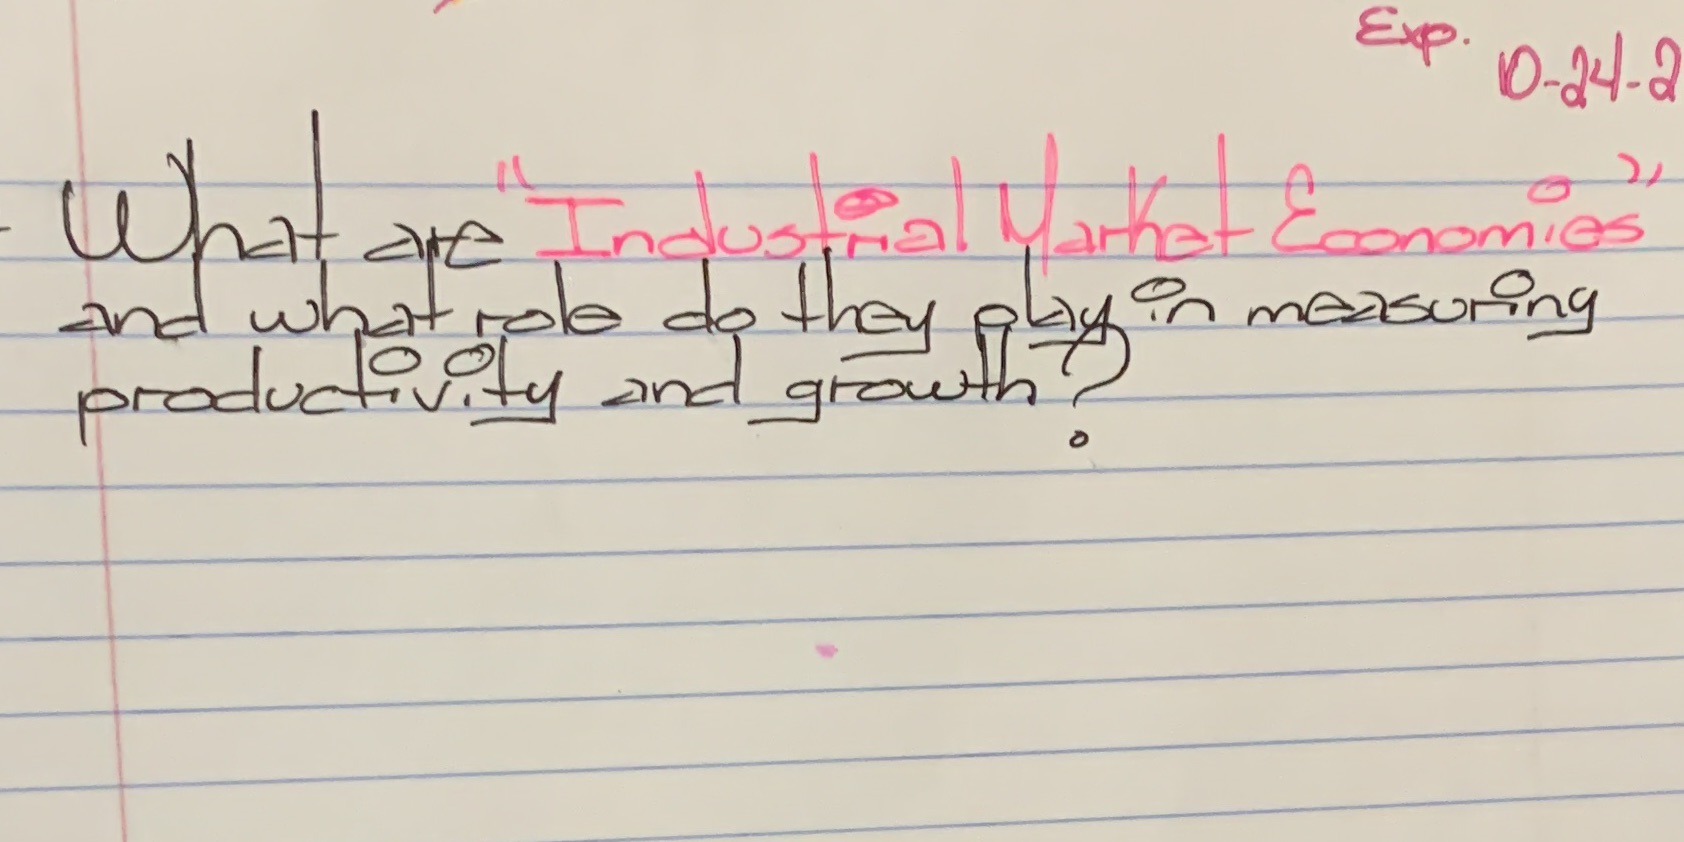 Exp.
10-24-2
- What are "Industrial Market Economies"
and what role do they play in measuring
productivity and growth?